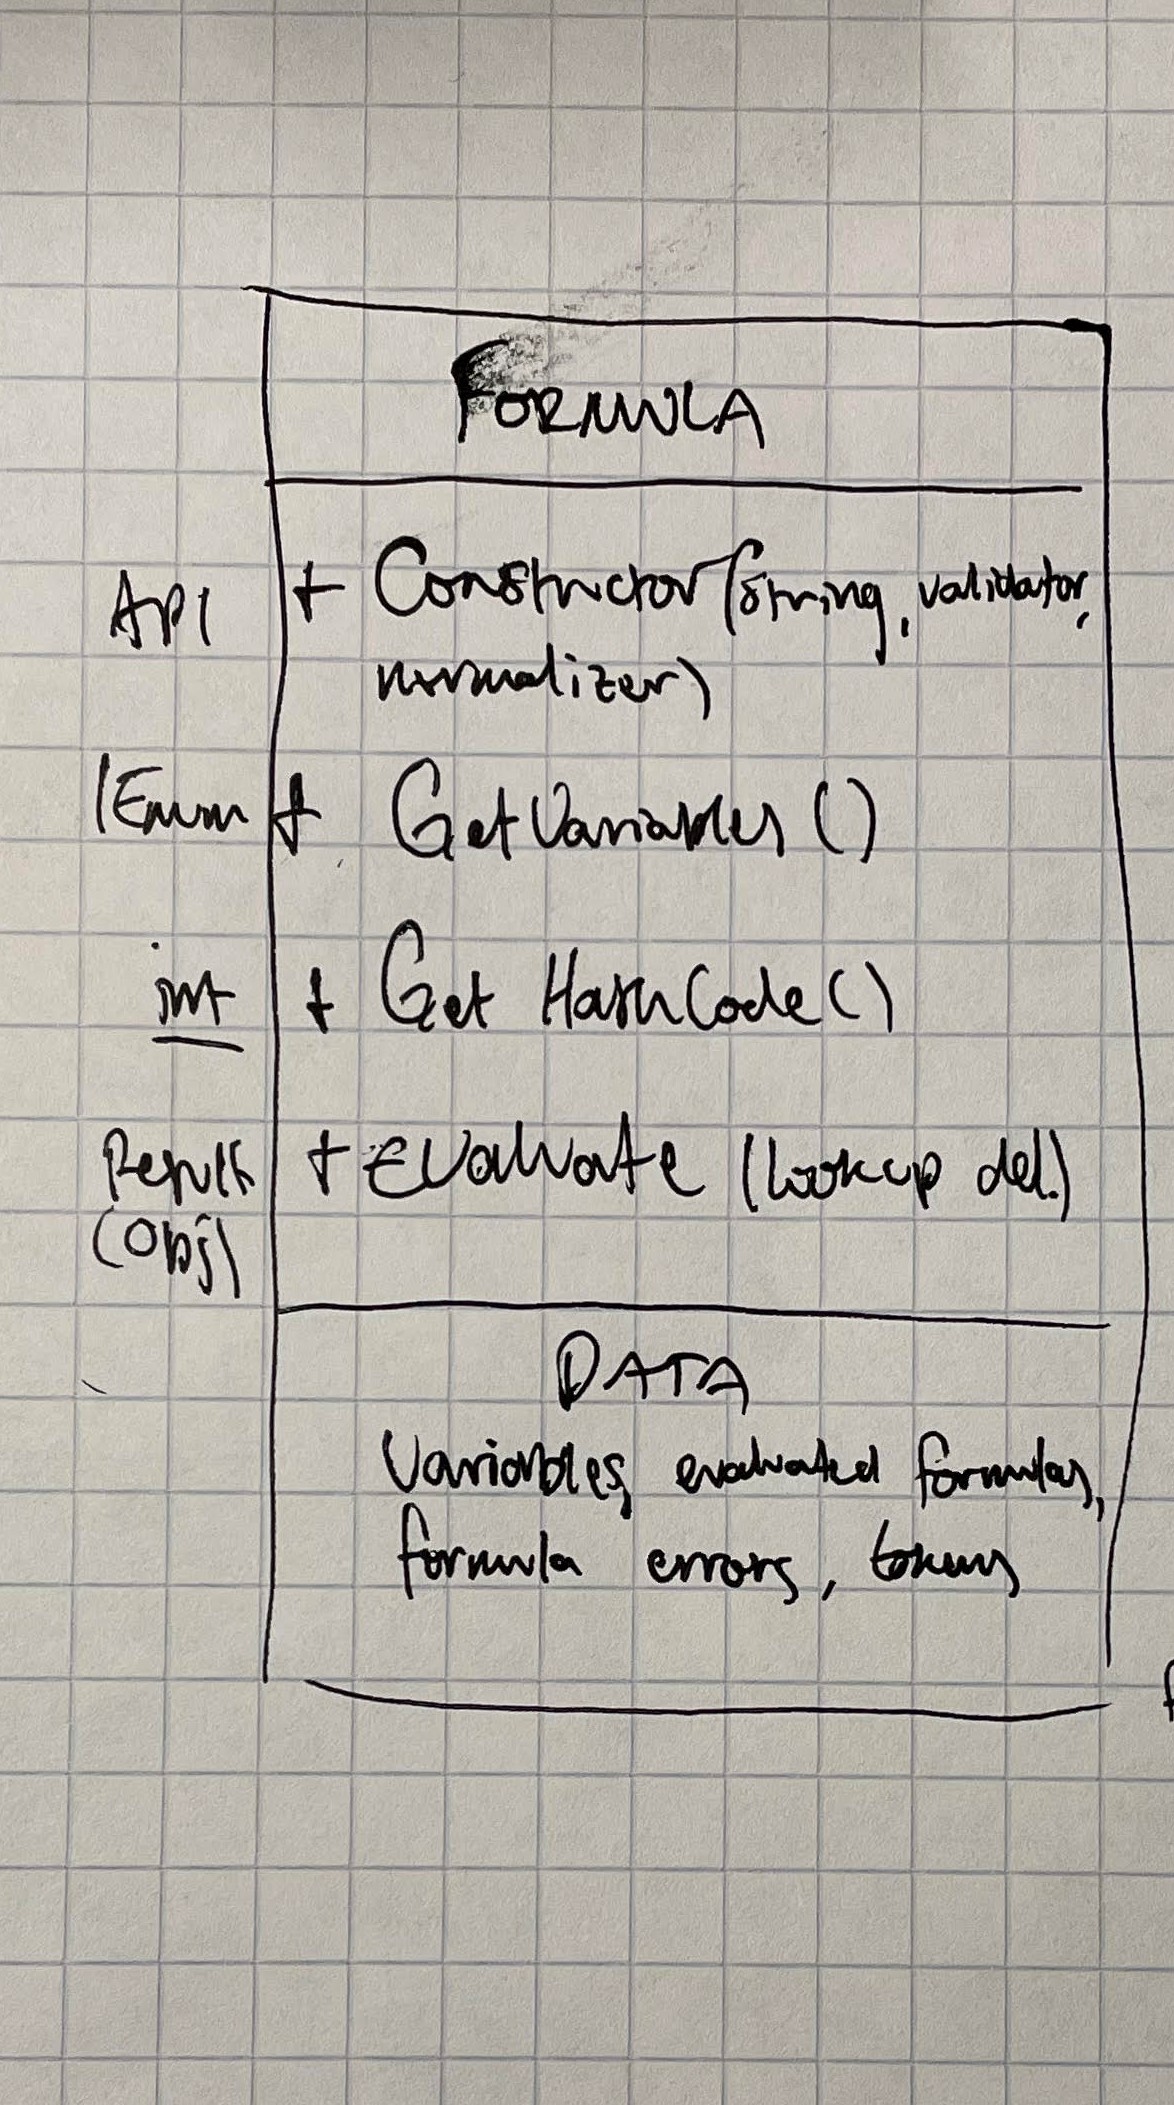 FORMULA
API + Constructor (string, validator,
normalizer)
IEnum + GetVariables ()
int + Get HashCode ()
Result + Evaluate (lookup del.)
(Obj)
DATA
Variables, evaluated formulas,
formula errors, tokens